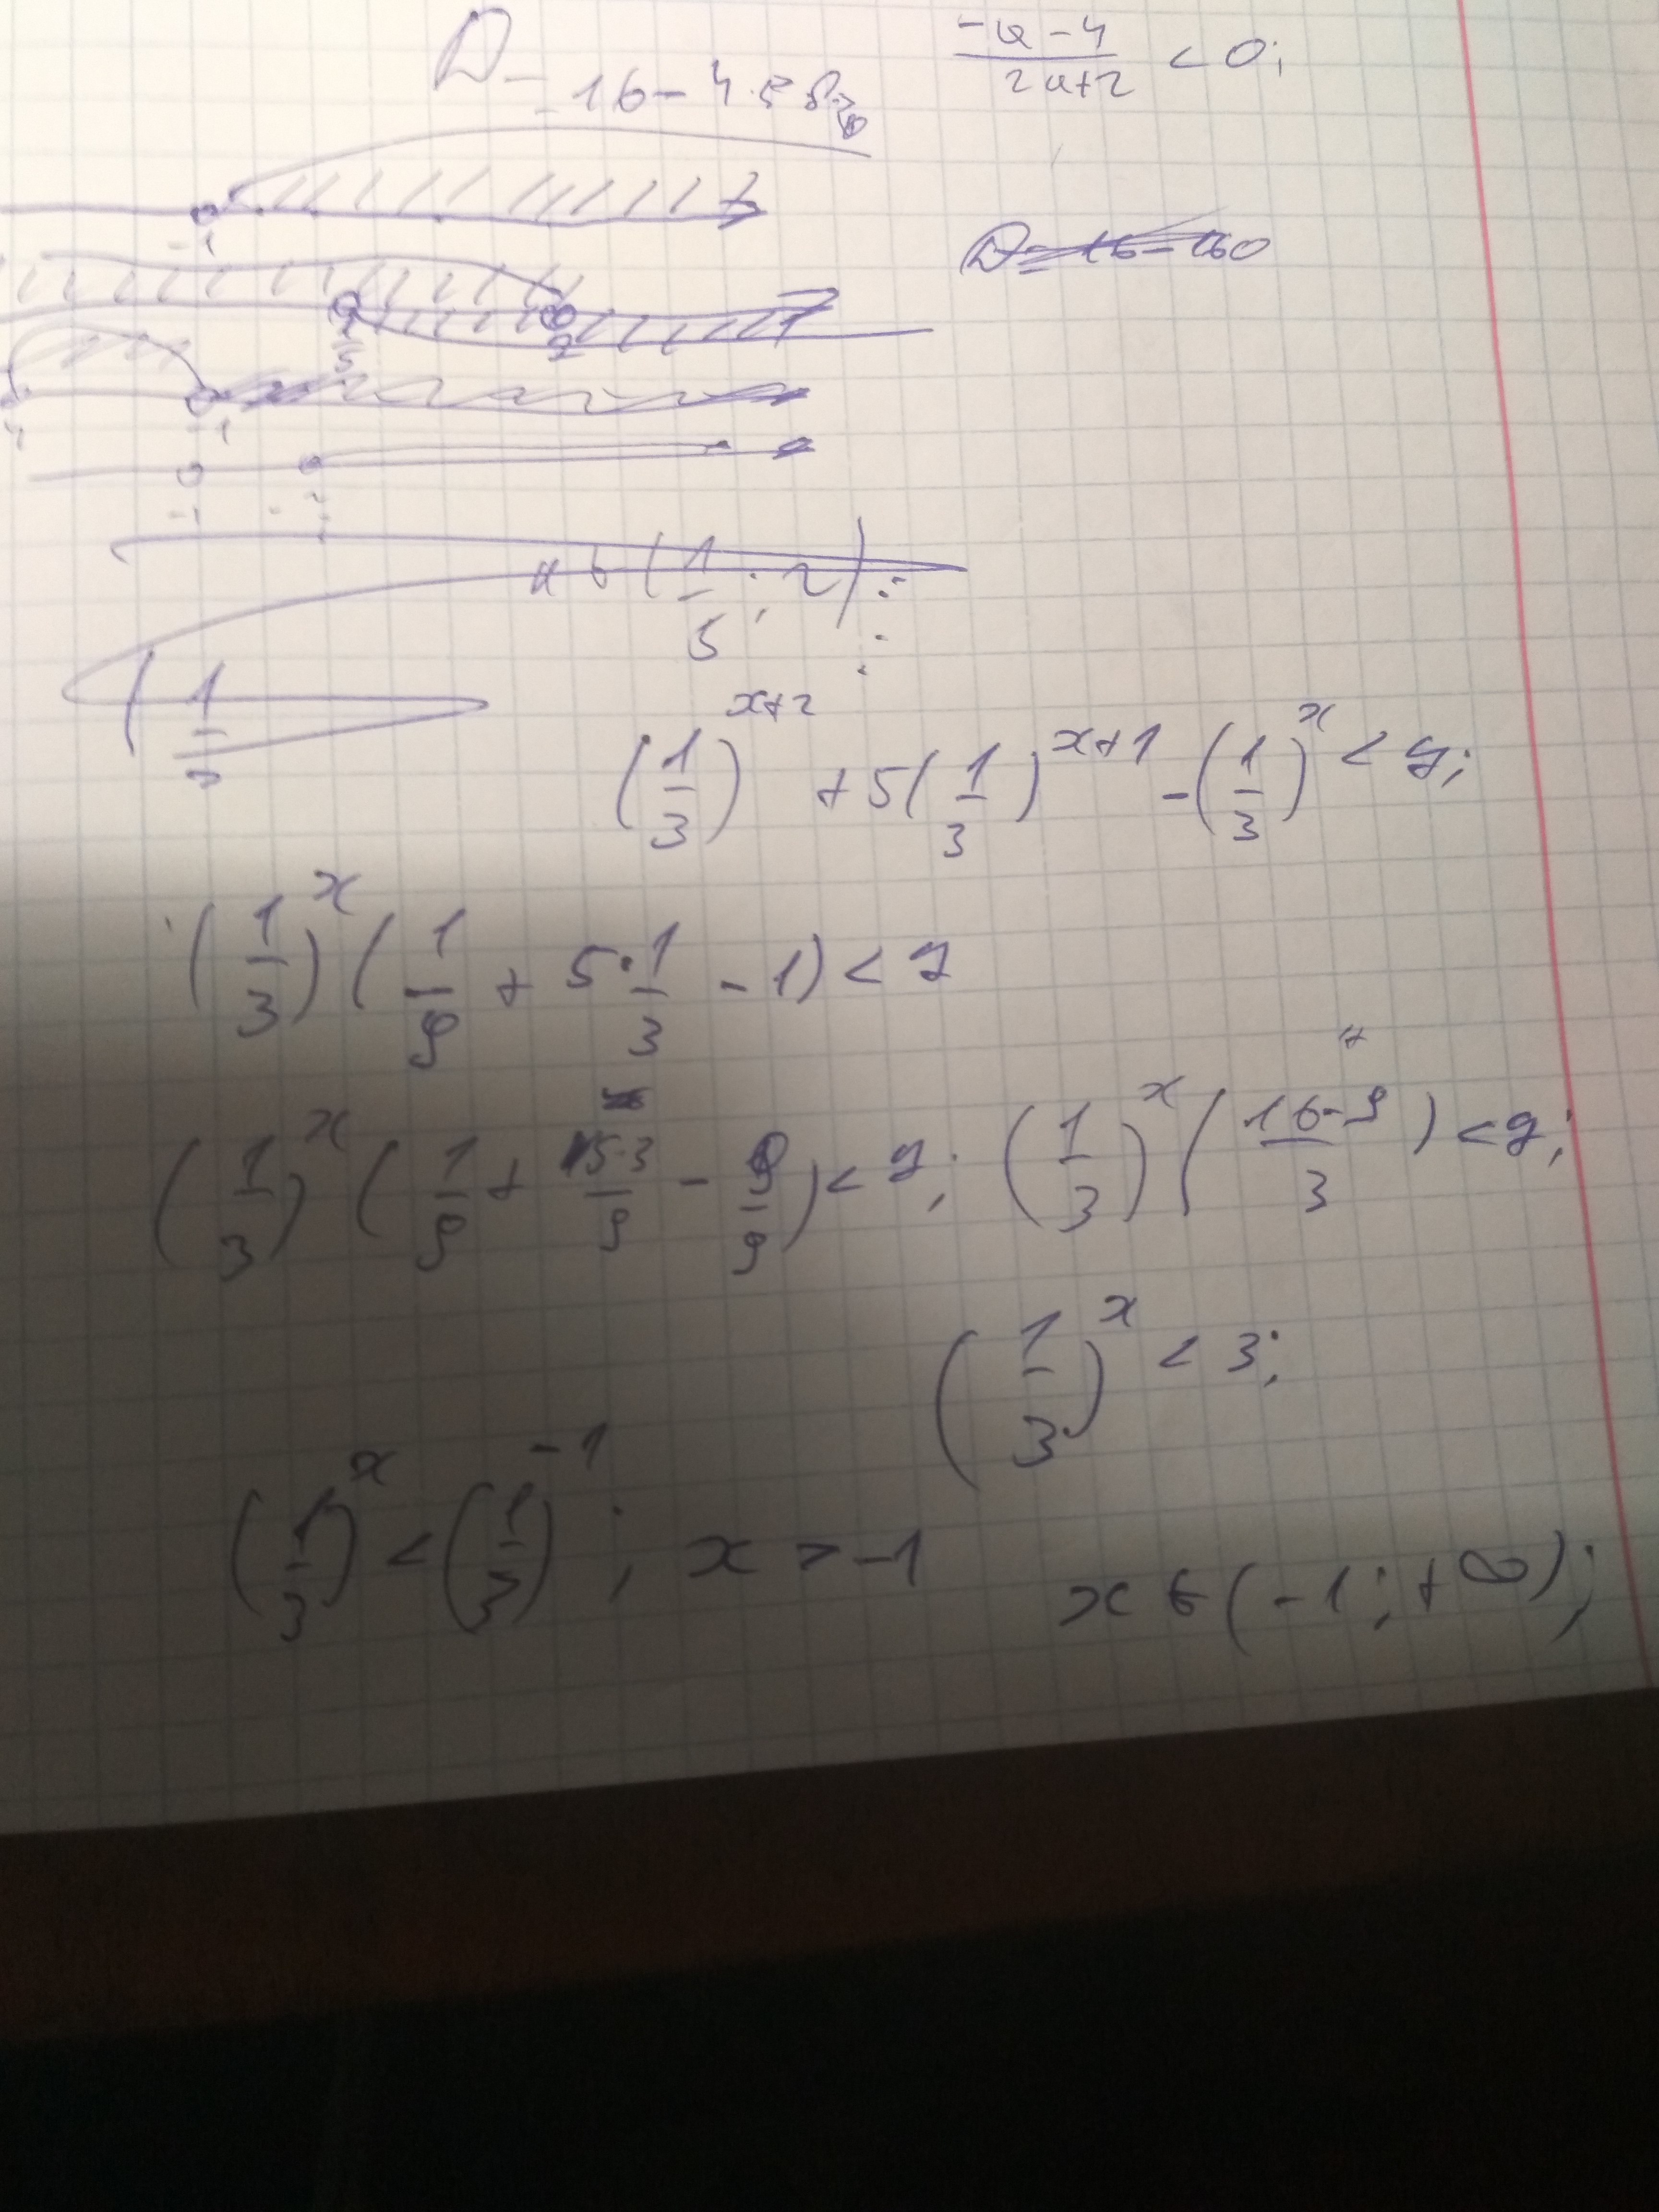 D = 16 - 4·5
(-a-4)/(2a+2) < 0;
D = 16 - 160
-1
1/5 2
-1
-1
a ∈ (1/5; 2)
(1/3)^(x+2) + 5(1/3)^(x+1) - (1/3)^x < 7;
(1/3)^x (1/9 + 5·1/3 - 1) < 7
(1/3)^x (1/9 + 5·3/9 - 9/9) < 7; (1/3)^x ((16-9)/3) < 7;
(1/3)^x < 3;
(1/3)^x < (1/3)^-1; x > -1
x ∈ (-1; +∞);